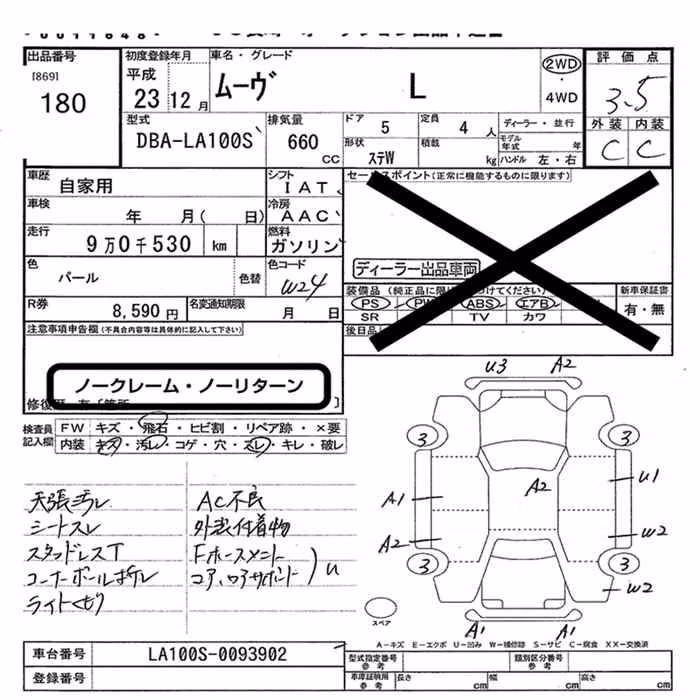 出品番号
[869]
180
初度登録年月
平成
23年12月
車名・グレード
ムーヴ L
2WD
4WD
評価点
3.5
外装 内装
C C
型式
DBA-LA100S
排気量
660
CC
ドア
5
定員
4人
ディーラー・並行
モデル
年式
年
形状
ステW
積載
kg
ハンドル 左・右
車歴
自家用
シフト
IAT
セールスポイント(正常に機能するものに限ります)
車検
年 月( 日)
冷房
AAC
走行
9万0千530 km
燃料
ガソリン
ディーラー出品車両
色
パール
色替
色コード
W24
装備品(純正品に限 つけてください)
PS PW ABS エアB
SR TV カワ
新車保証書
有・無
R券
8,590円
名変通知期限
月 日
後日品
注意事項申告欄(不具合内容等は具体的に記入して下さい)
ノークレーム・ノーリターン
修復歴
検査員
記入欄
FW キズ・飛石・ヒビ割・リペア跡・×要
内装 キズ・汚レ・コゲ・穴・スレ・キレ・破レ
天張汚レ
シートスレ
スタッドレスT
コーナーポール折レ
ライトくもり
AC不良
外装付着物
Fホースメント
コア、ロアサポート
U
U3 A2
3 3
A1 A2 U1
A2 W2
3 3
W2
A1 A1
スペア
A-キズ E-エクボ U-凹み W-補修跡 S-サビ C-腐食 XX-交換済
車台番号
LA100S-0093902
登録番号
型式指定番号
参考
類別区分番号
参考
車庫証明用
参考
長さ
cm
幅
cm
高さ
cm